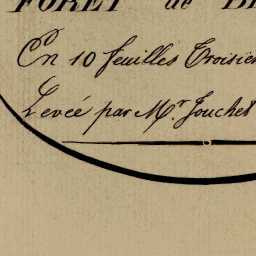 FORET de
En 10 feuilles
Levée par Mr. Jouchet